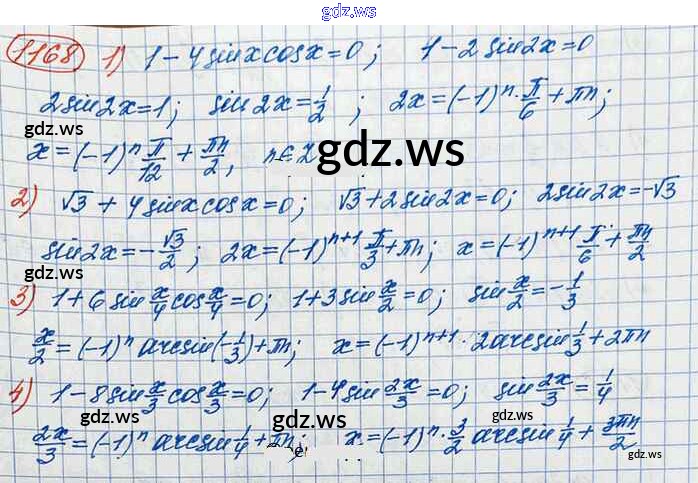 gdz.ws
1168 1) 1 - 4 sin x cos x = 0; 1 - 2 sin 2x = 0
2 sin 2x = 1; sin 2x = 1/2; 2x = (-1)^n · π/6 + πn;
gdz.ws
gdz.ws
x = (-1)^n π/12 + πn/2, n ∈ Z
2) √3 + 4 sin x cos x = 0; √3 + 2 sin 2x = 0; 2 sin 2x = -√3
sin 2x = -√3/2; 2x = (-1)^(n+1) π/3 + πn; x = (-1)^(n+1) π/6 + πn/2
gdz.ws
gdz.ws
3) 1 + 6 sin x/4 cos x/4 = 0; 1 + 3 sin x/2 = 0; sin x/2 = -1/3
x/2 = (-1)^n arcsin(-1/3) + πn; x = (-1)^(n+1) · 2 arcsin 1/3 + 2πn
4) 1 - 8 sin x/3 cos x/3 = 0; 1 - 4 sin 2x/3 = 0; sin 2x/3 = 1/4
gdz.ws
gdz.ws
2x/3 = (-1)^n arcsin 1/4 + πn; x = (-1)^n · 3/2 arcsin 1/4 + 3πn/2
gdz.ws